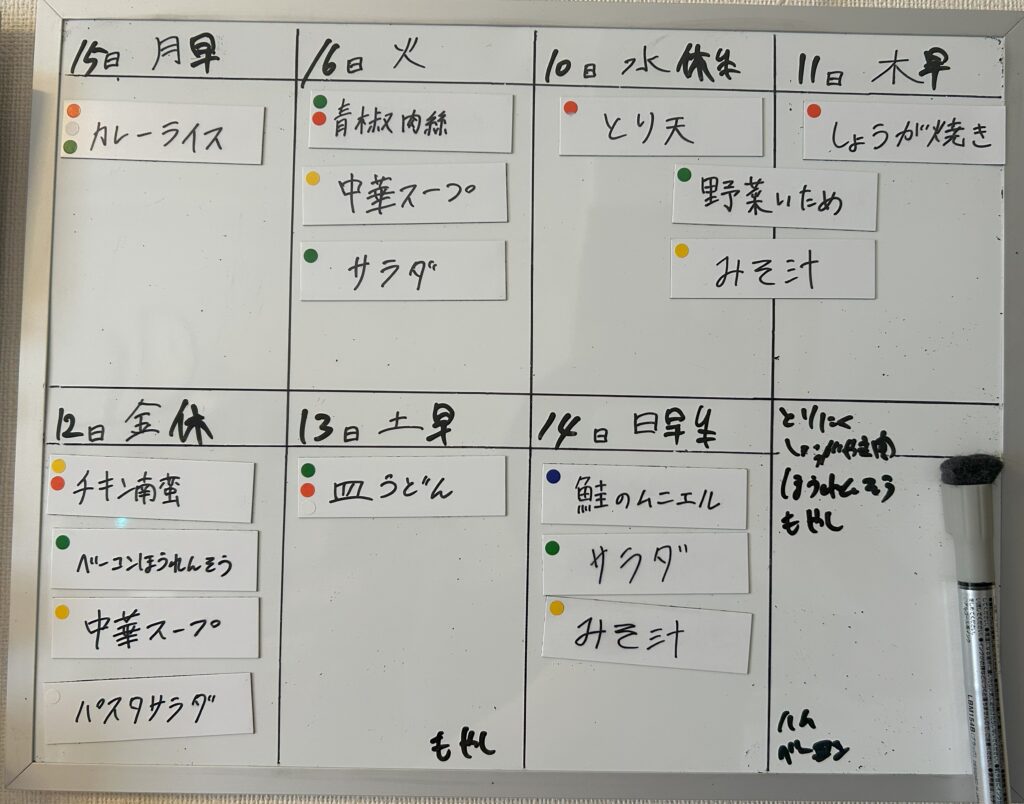 15日 月早
カレーライス
16日 火
青椒肉絲
中華スープ
サラダ
10日 水 休
とり天
11日 木早
しょうが焼き
野菜いため
みそ汁
12日 金休
チキン南蛮
ベーコンほうれんそう
中華スープ
パスタサラダ
13日 土早
皿うどん
もやし
14日 日早
鮭のムニエル
サラダ
みそ汁
とりにく
ほうれんそう
もやし
ハム
ベーコン
LBM154B